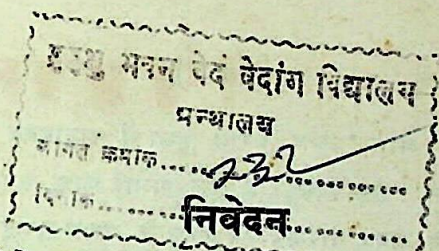 मुमुक्षु भवन वेद वेदांग विद्यालय
ग्रन्थालय
आगत क्रमांक......232......
दिनांक......
निवेदन